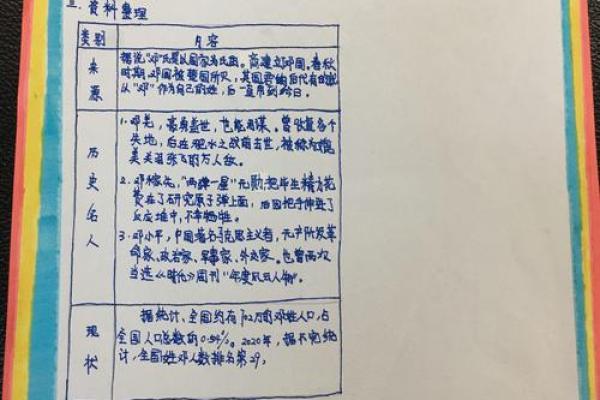 三. 资料整理
类别 内容
来源
据说"邓"氏是以国家为氏的。商建立邓国。春秋
时期,邓国被楚国所灭,其国君的后代有的就
从"邓"作为自己的姓,后一直带到今日。
历史名人
1. 邓羌,豪勇盖世,也能用谋。曾收复各个
失地,后在淝水之战前去世,被称为媲
美关羽张飞的万人敌。
2. 邓稼先,"两弹一星"元勋,把毕生精力花
费在了研究原子弹上面,后因把手伸进了
反应堆中,不幸牺牲。
3. 邓小平,中国著名马克思主义者,无产阶级革
命家、政治家、军事家、外交家。也曾两次
当选《时代》周刊"年度风云人物"。
现状
据统计、全国约有702万的邓姓人口,占
全国人口总数的0.54%。2020年,据不完统
计,全国姓邓人数排名第29,